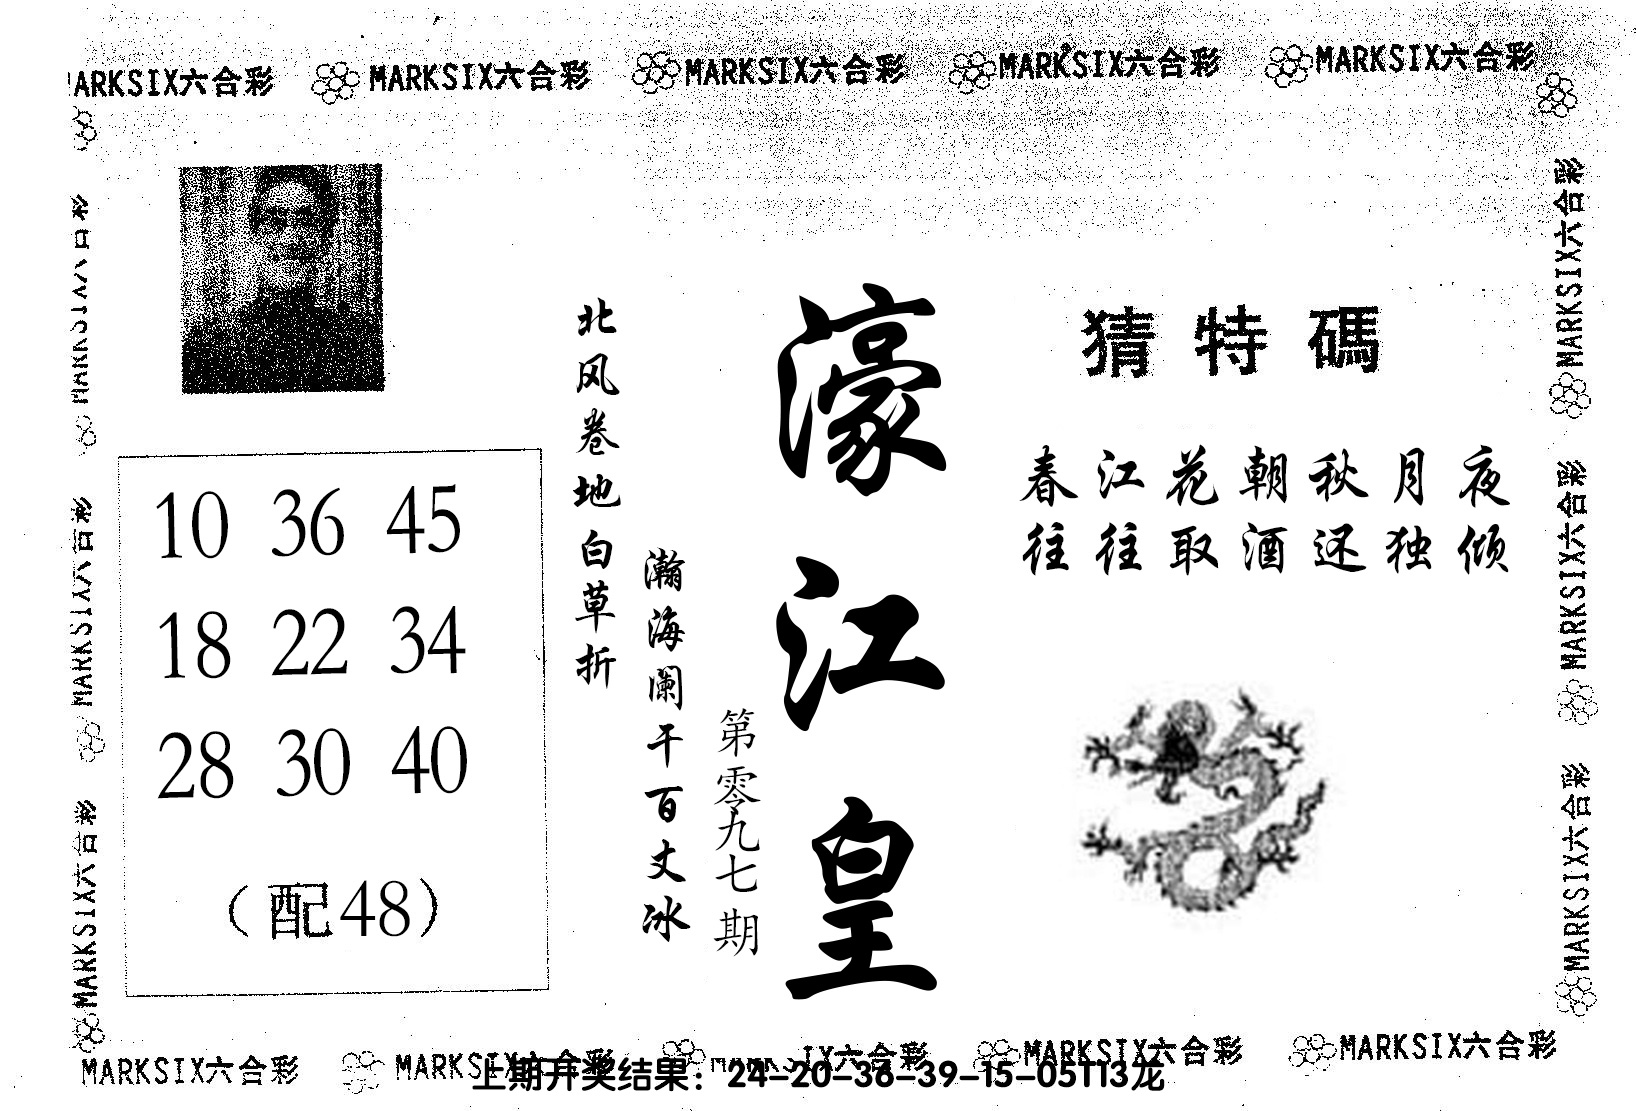 MARKSIX六合彩 MARKSIX六合彩 MARKSIX六合彩 MARKSIX六合彩
猜特碼
春江花朝秋月夜
往往取酒还独倾
濠江皇
第零九七期
北风卷地白草折
瀚海阑干百丈冰
10 36 45
18 22 34
28 30 40
（配48）
MARKSIX六合彩
MARKSIX六合彩
MARKSIX六合彩
MARKSIX六合彩
MARKSIX六合彩
MARKSIX六合彩 MARKSIX六合彩 MARKSIX六合彩 MARKSIX六合彩
上期开奖结果：24-20-36-39-15-05T13龙